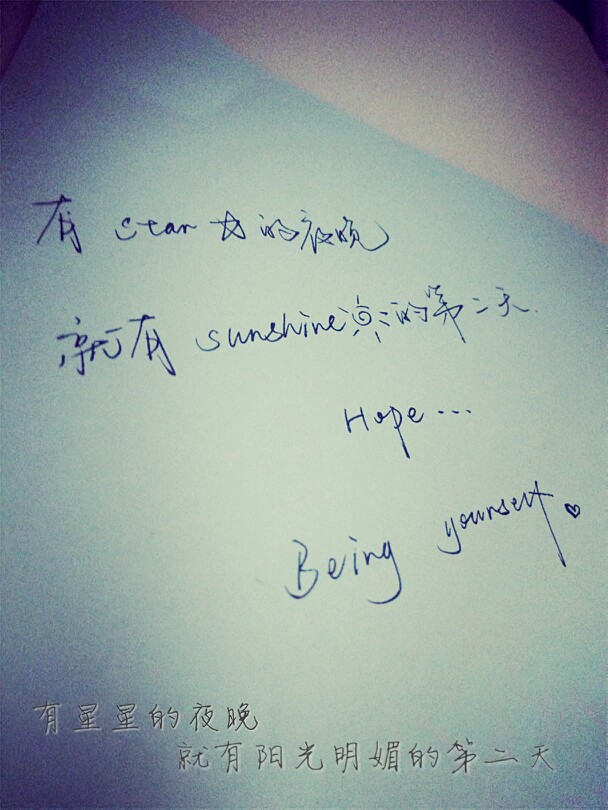 有 star ☆ 的夜晚
就有 sunshine ☀ 的第二天.
Hope...
Being yourself ♡
有星星的夜晚
就有阳光明媚的第二天